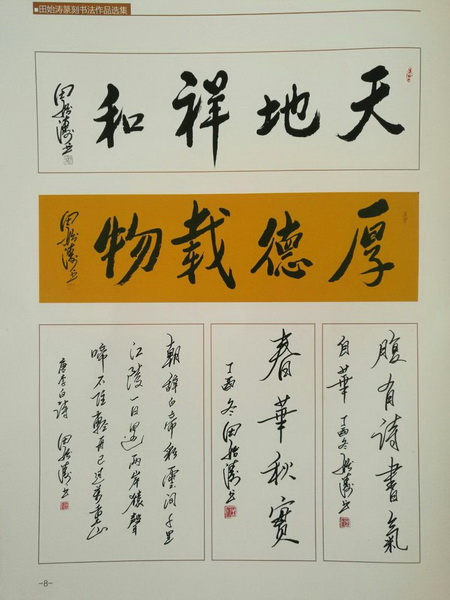 田始涛篆刻书法作品选集
天地祥和
田始濤书
厚德載物
田始濤书
腹有詩書氣
自華 丁酉冬 始濤书
春華秋實
丁酉冬田始濤书
朝辞白帝彩雲间千里
江陵一日還两岸猿聲
啼不住輕舟已过萬重山
唐李白诗 田始濤书
-8-